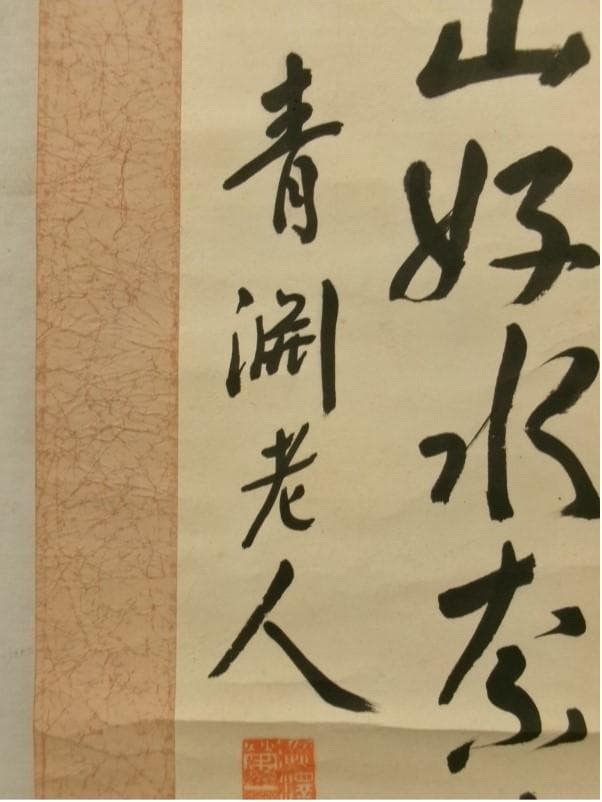 山好水奈
青淵老人